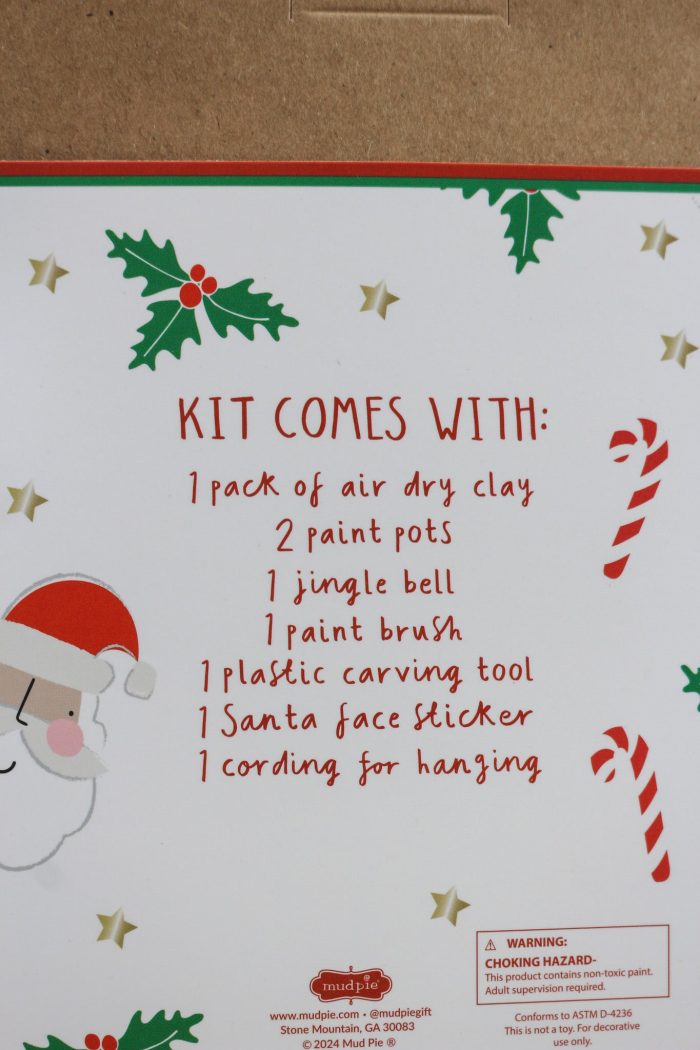 KIT COMES WITH:
1 pack of air dry clay
2 paint pots
1 jingle bell
1 paint brush
1 plastic carving tool
1 Santa face sticker
1 cording for hanging
⚠ WARNING:
CHOKING HAZARD-
This product contains non-toxic paint.
Adult supervision required.
mudpie®
www.mudpie.com • @mudpiegift
Stone Mountain, GA 30083
© 2024 Mud Pie ®
Conforms to ASTM D-4236
This is not a toy. For decorative
use only.